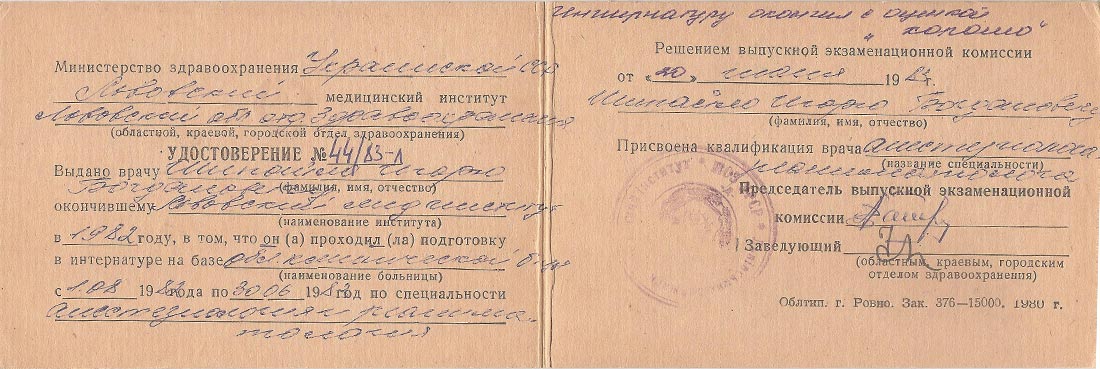 Министерство здравоохранения Украинской ССР
Львовский медицинский институт
Львовский обл. отд. Здравоохранения
(областной, краевой, городской отдел здравоохранения)
УДОСТОВЕРЕНИЕ № 44/83-л
Выдано врачу Игорю
Богдановичу (фамилия, имя, отчество)
окончившему Львовский мединститут
(наименование института)
в 1982 году, в том, что он (а) проходил (ла) подготовку
в интернатуре на базе обл. клинической б-цы
(наименование больницы)
с 1.08 1982 года по 30.06 1983 год по специальности
анестезиология и реанима-
тология
Интернатуру окончил с оценкой
"хорошо"
Решением выпускной экзаменационной комиссии
от «20» июня 1983 г.
Игорю Богдановичу
(фамилия, имя, отчество)
Присвоена квалификация врача анестезиолога-
(название специальности)
реаниматолога
Председатель выпускной экзаменационной
комиссии
Заведующий
(областным, краевым, городским
отделом здравоохранения)
Облтип. г. Ровно. Зак. 376—15000. 1980 г.